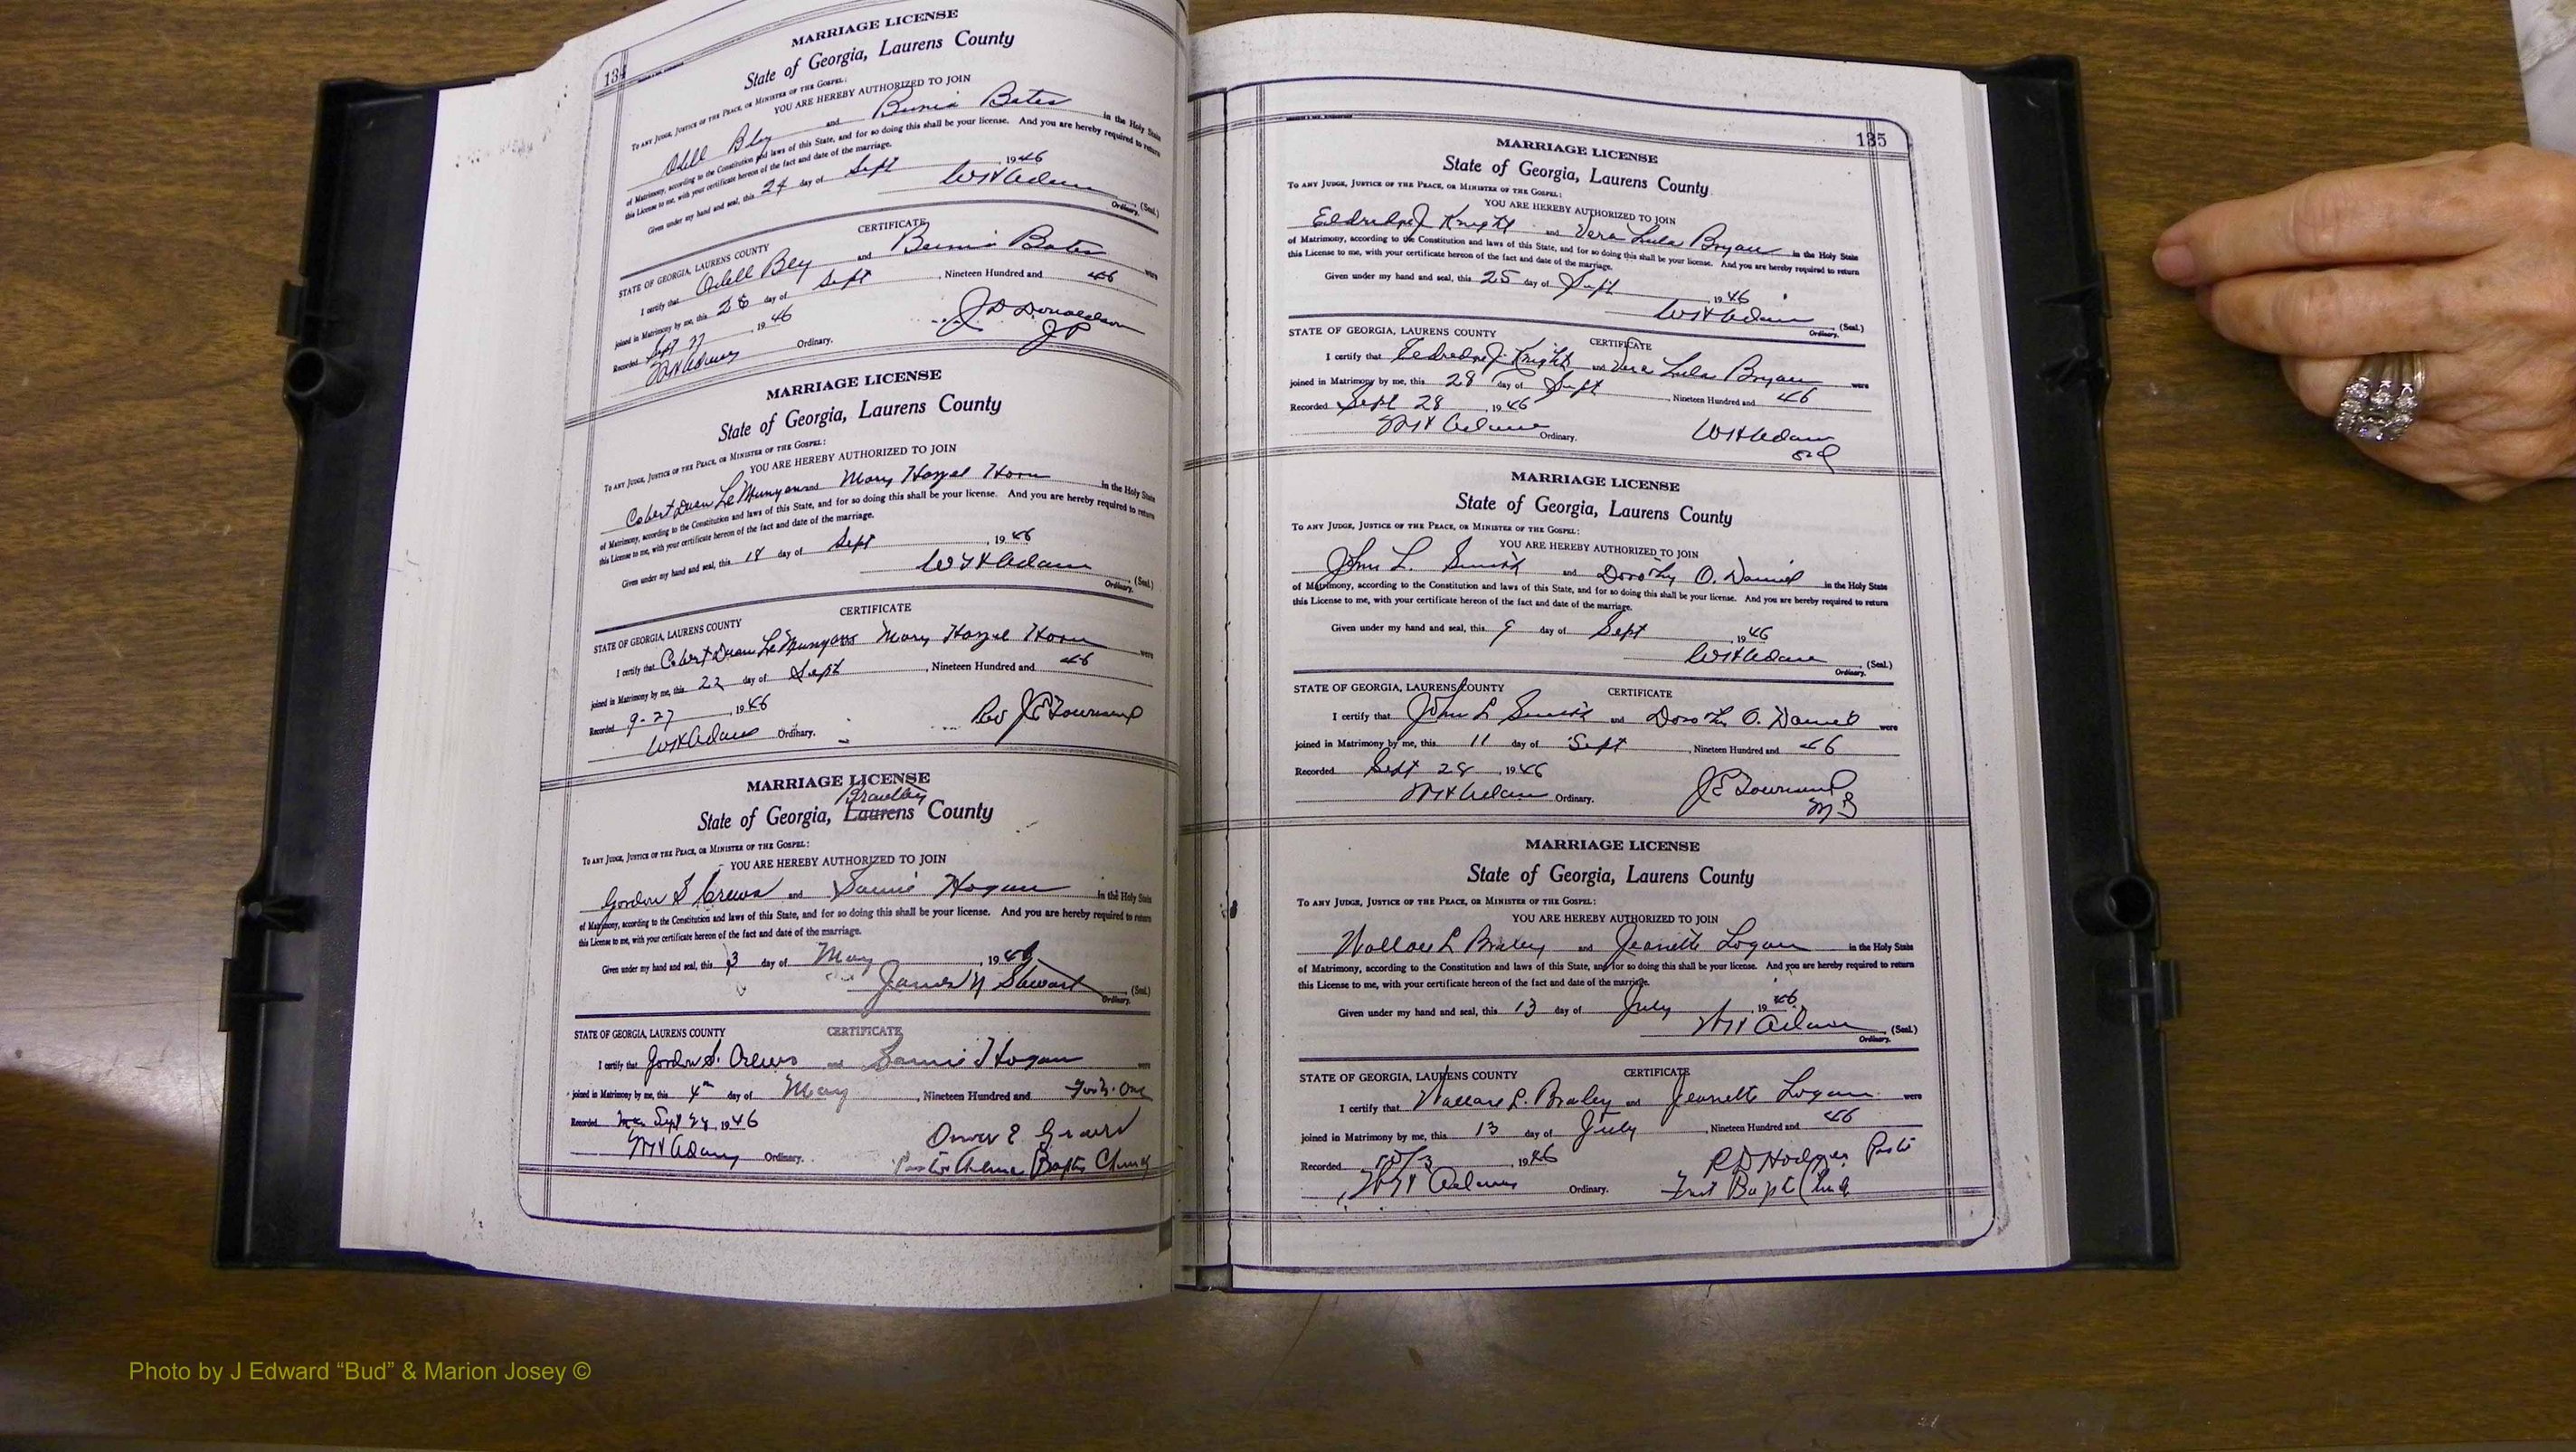 134
MARRIAGE LICENSE
State of Georgia, Laurens County
TO ANY JUDGE, JUSTICE OF THE PEACE, OR MINISTER OF THE GOSPEL:
YOU ARE HEREBY AUTHORIZED TO JOIN
Odell Bley and Bates in the Holy State
of Matrimony, according to the Constitution and laws of this State, and for so doing this shall be your license. And you are hereby required to return
this License to me, with your certificate hereon of the fact and date of the marriage.
Given under my hand and seal, this 24 day of Sept, 1946
WH Adams (Seal.)
Ordinary.
CERTIFICATE
STATE OF GEORGIA, LAURENS COUNTY
I certify that Odell Bley and Bates were
joined in Matrimony by me, this 28 day of Sept, Nineteen Hundred and 46
Recorded Sept 27, 1946
WH Adams Ordinary.
J D Donaldson
JP
MARRIAGE LICENSE
State of Georgia, Laurens County
TO ANY JUDGE, JUSTICE OF THE PEACE, OR MINISTER OF THE GOSPEL:
YOU ARE HEREBY AUTHORIZED TO JOIN
Cobert Duan Le Munyan and Mary Hazel Horn in the Holy State
of Matrimony, according to the Constitution and laws of this State, and for so doing this shall be your license. And you are hereby required to return
this License to me, with your certificate hereon of the fact and date of the marriage.
Given under my hand and seal, this 18 day of Sept, 1946
WH Adams (Seal.)
Ordinary.
CERTIFICATE
STATE OF GEORGIA, LAURENS COUNTY
I certify that Cobert Duan Le Munyan and Mary Hazel Horn were
joined in Matrimony by me, this 22 day of Sept, Nineteen Hundred and 46
Recorded 9-27, 1946
WH Adams Ordinary.
Rev J E Townsend
MARRIAGE LICENSE
Brantley
State of Georgia, Laurens County
TO ANY JUDGE, JUSTICE OF THE PEACE, OR MINISTER OF THE GOSPEL:
YOU ARE HEREBY AUTHORIZED TO JOIN
Gordon S Crews and Hogan in the Holy State
of Matrimony, according to the Constitution and laws of this State, and for so doing this shall be your license. And you are hereby required to return
this License to me, with your certificate hereon of the fact and date of the marriage.
Given under my hand and seal, this 3 day of May, 19
James N Stewart (Seal.)
Ordinary.
STATE OF GEORGIA, LAURENS COUNTY CERTIFICATE
I certify that Gordon S. Crews and Hogan were
joined in Matrimony by me, this 4th day of May, Nineteen Hundred and Forty-One
Recorded Sept, 1946
WH Adams Ordinary.
Pastor Alma Baptist Church
135
MARRIAGE LICENSE
State of Georgia, Laurens County
TO ANY JUDGE, JUSTICE OF THE PEACE, OR MINISTER OF THE GOSPEL:
YOU ARE HEREBY AUTHORIZED TO JOIN
Eldredge J Knight and Vera Lula Bryan in the Holy State
of Matrimony, according to the Constitution and laws of this State, and for so doing this shall be your license. And you are hereby required to return
this License to me, with your certificate hereon of the fact and date of the marriage.
Given under my hand and seal, this 25 day of Sept, 1946
WH Adams (Seal.)
Ordinary.
STATE OF GEORGIA, LAURENS COUNTY
CERTIFICATE
I certify that Eldredge J. Knight and Vera Lula Bryan were
joined in Matrimony by me, this 28 day of Sept, Nineteen Hundred and 46
Recorded Sept 28, 1946
WH Adams Ordinary.
WH Adams
Ord
MARRIAGE LICENSE
State of Georgia, Laurens County
TO ANY JUDGE, JUSTICE OF THE PEACE, OR MINISTER OF THE GOSPEL:
YOU ARE HEREBY AUTHORIZED TO JOIN
John L. Smith and Dorothy O. Daniel in the Holy State
of Matrimony, according to the Constitution and laws of this State, and for so doing this shall be your license. And you are hereby required to return
this License to me, with your certificate hereon of the fact and date of the marriage.
Given under my hand and seal, this 9 day of Sept, 1946
WH Adams (Seal.)
Ordinary.
STATE OF GEORGIA, LAURENS COUNTY CERTIFICATE
I certify that John L Smith and Dorothy O. Daniel were
joined in Matrimony by me, this 11 day of Sept, Nineteen Hundred and 46
Recorded Sept 28, 1946
WH Adams Ordinary.
J E Townsend
MG
MARRIAGE LICENSE
State of Georgia, Laurens County
TO ANY JUDGE, JUSTICE OF THE PEACE, OR MINISTER OF THE GOSPEL:
YOU ARE HEREBY AUTHORIZED TO JOIN
Wallace L Braley and Jeanette Logan in the Holy State
of Matrimony, according to the Constitution and laws of this State, and for so doing this shall be your license. And you are hereby required to return
this License to me, with your certificate hereon of the fact and date of the marriage.
Given under my hand and seal, this 13 day of July, 1946
WH Adams (Seal.)
Ordinary.
STATE OF GEORGIA, LAURENS COUNTY CERTIFICATE
I certify that Wallace L. Braley and Jeanette Logan were
joined in Matrimony by me, this 13 day of July, Nineteen Hundred and 46
Recorded 10/3, 1946
WH Adams Ordinary.
R D Hodges Pastor
First Bapt Church
Photo by J Edward “Bud” & Marion Josey ©